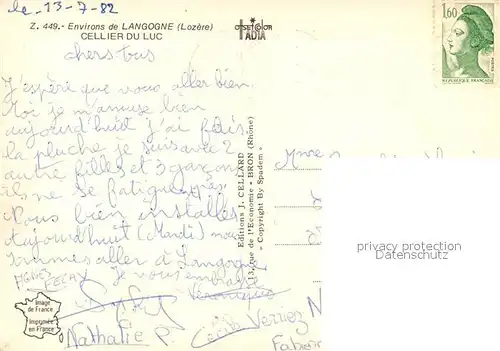 le 13-7-82
Z. 449.- Environs de LANGOGNE (Lozère)
CELLIER DU LUC
OFSETCOLOR
IADIA
1,60
REPUBLIQUE FRANÇAISE
chers tous
J'espère que vous aller bien.
Moi je m'amuse bien
aujourd'huit j'ai fait
la pluche je suis avec 2
autre filles et 3 garçons
ils ne se fatigue pas
Nous bien installés
Aujourd'huit (Mardi) nous
sommes aller à Langogne
je vous embrasse
AGNES
Véronique
Sophy
Nathalie P.
Cécile Vernez N
Fabien
Editions J. CELLARD
13, rue de l'Economie - BRON (Rhône)
« Copyright By Spadem »
Mme
privacy protection
watermark AnsiCards.de
Image
de France
Imprimée
en France